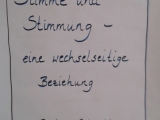 Stimme und
Stimmung –
eine wechselseitige
Beziehung